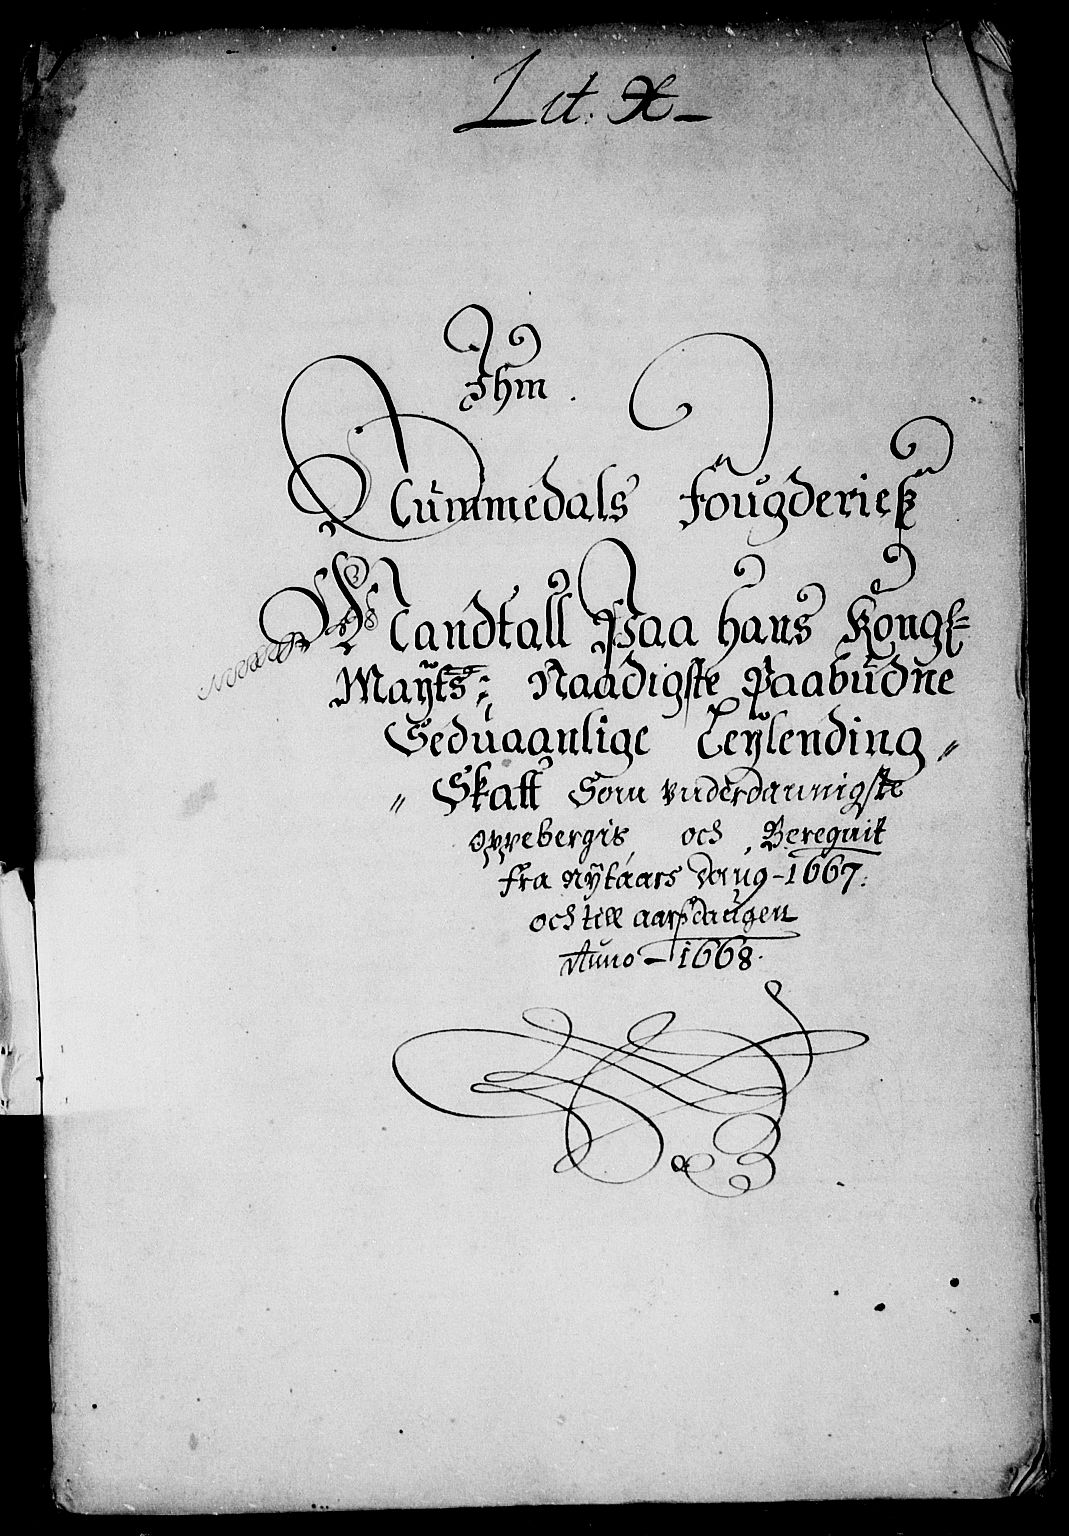 Lit: X
Ihm
Nummedals Fougderieß
Mandtall Paa hans Kong:
Maÿts: Naadigste Paabüdne
Seduaanlige Leÿlending
Skatt Som vnderdannigste
oppebergis och Beregnit
fra nÿtaars daug - 1667:
och till aarßdaugen
Anno - 1668.